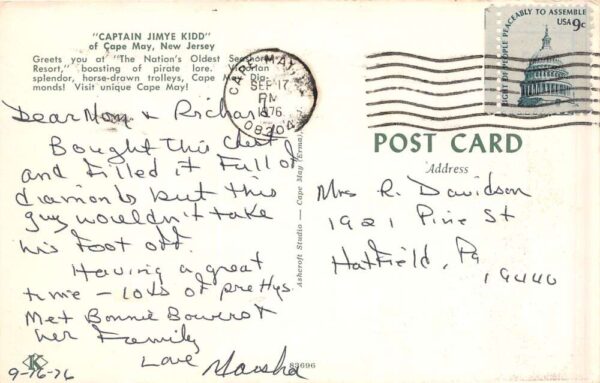 "CAPTAIN JIMYE KIDD"
of Cape May, New Jersey
Greets you at "The Nation's Oldest Seashore
Resort," boasting of pirate lore, Victorian
splendor, horse-drawn trolleys, Cape May Dia-
monds! Visit unique Cape May!
CAPE MAY
SEP 17
PM
1976
08204
RIGHT OF PEOPLE PEACEABLY TO ASSEMBLE
USA 9c
Dear Mom & Richard
Bought this chest
and filled it full of
diamonds but this
guy wouldn't take
his foot off.
Having a great
time – lots of prettys.
Met Bonnie Bowers &
her Family
Love Marsha
9-16-76
K
83696
Ashcroft Studio — Cape May (Erma)
POST CARD
Address
Mrs R. Davidson
1921 Pine St
Hatfield, Pa
19440